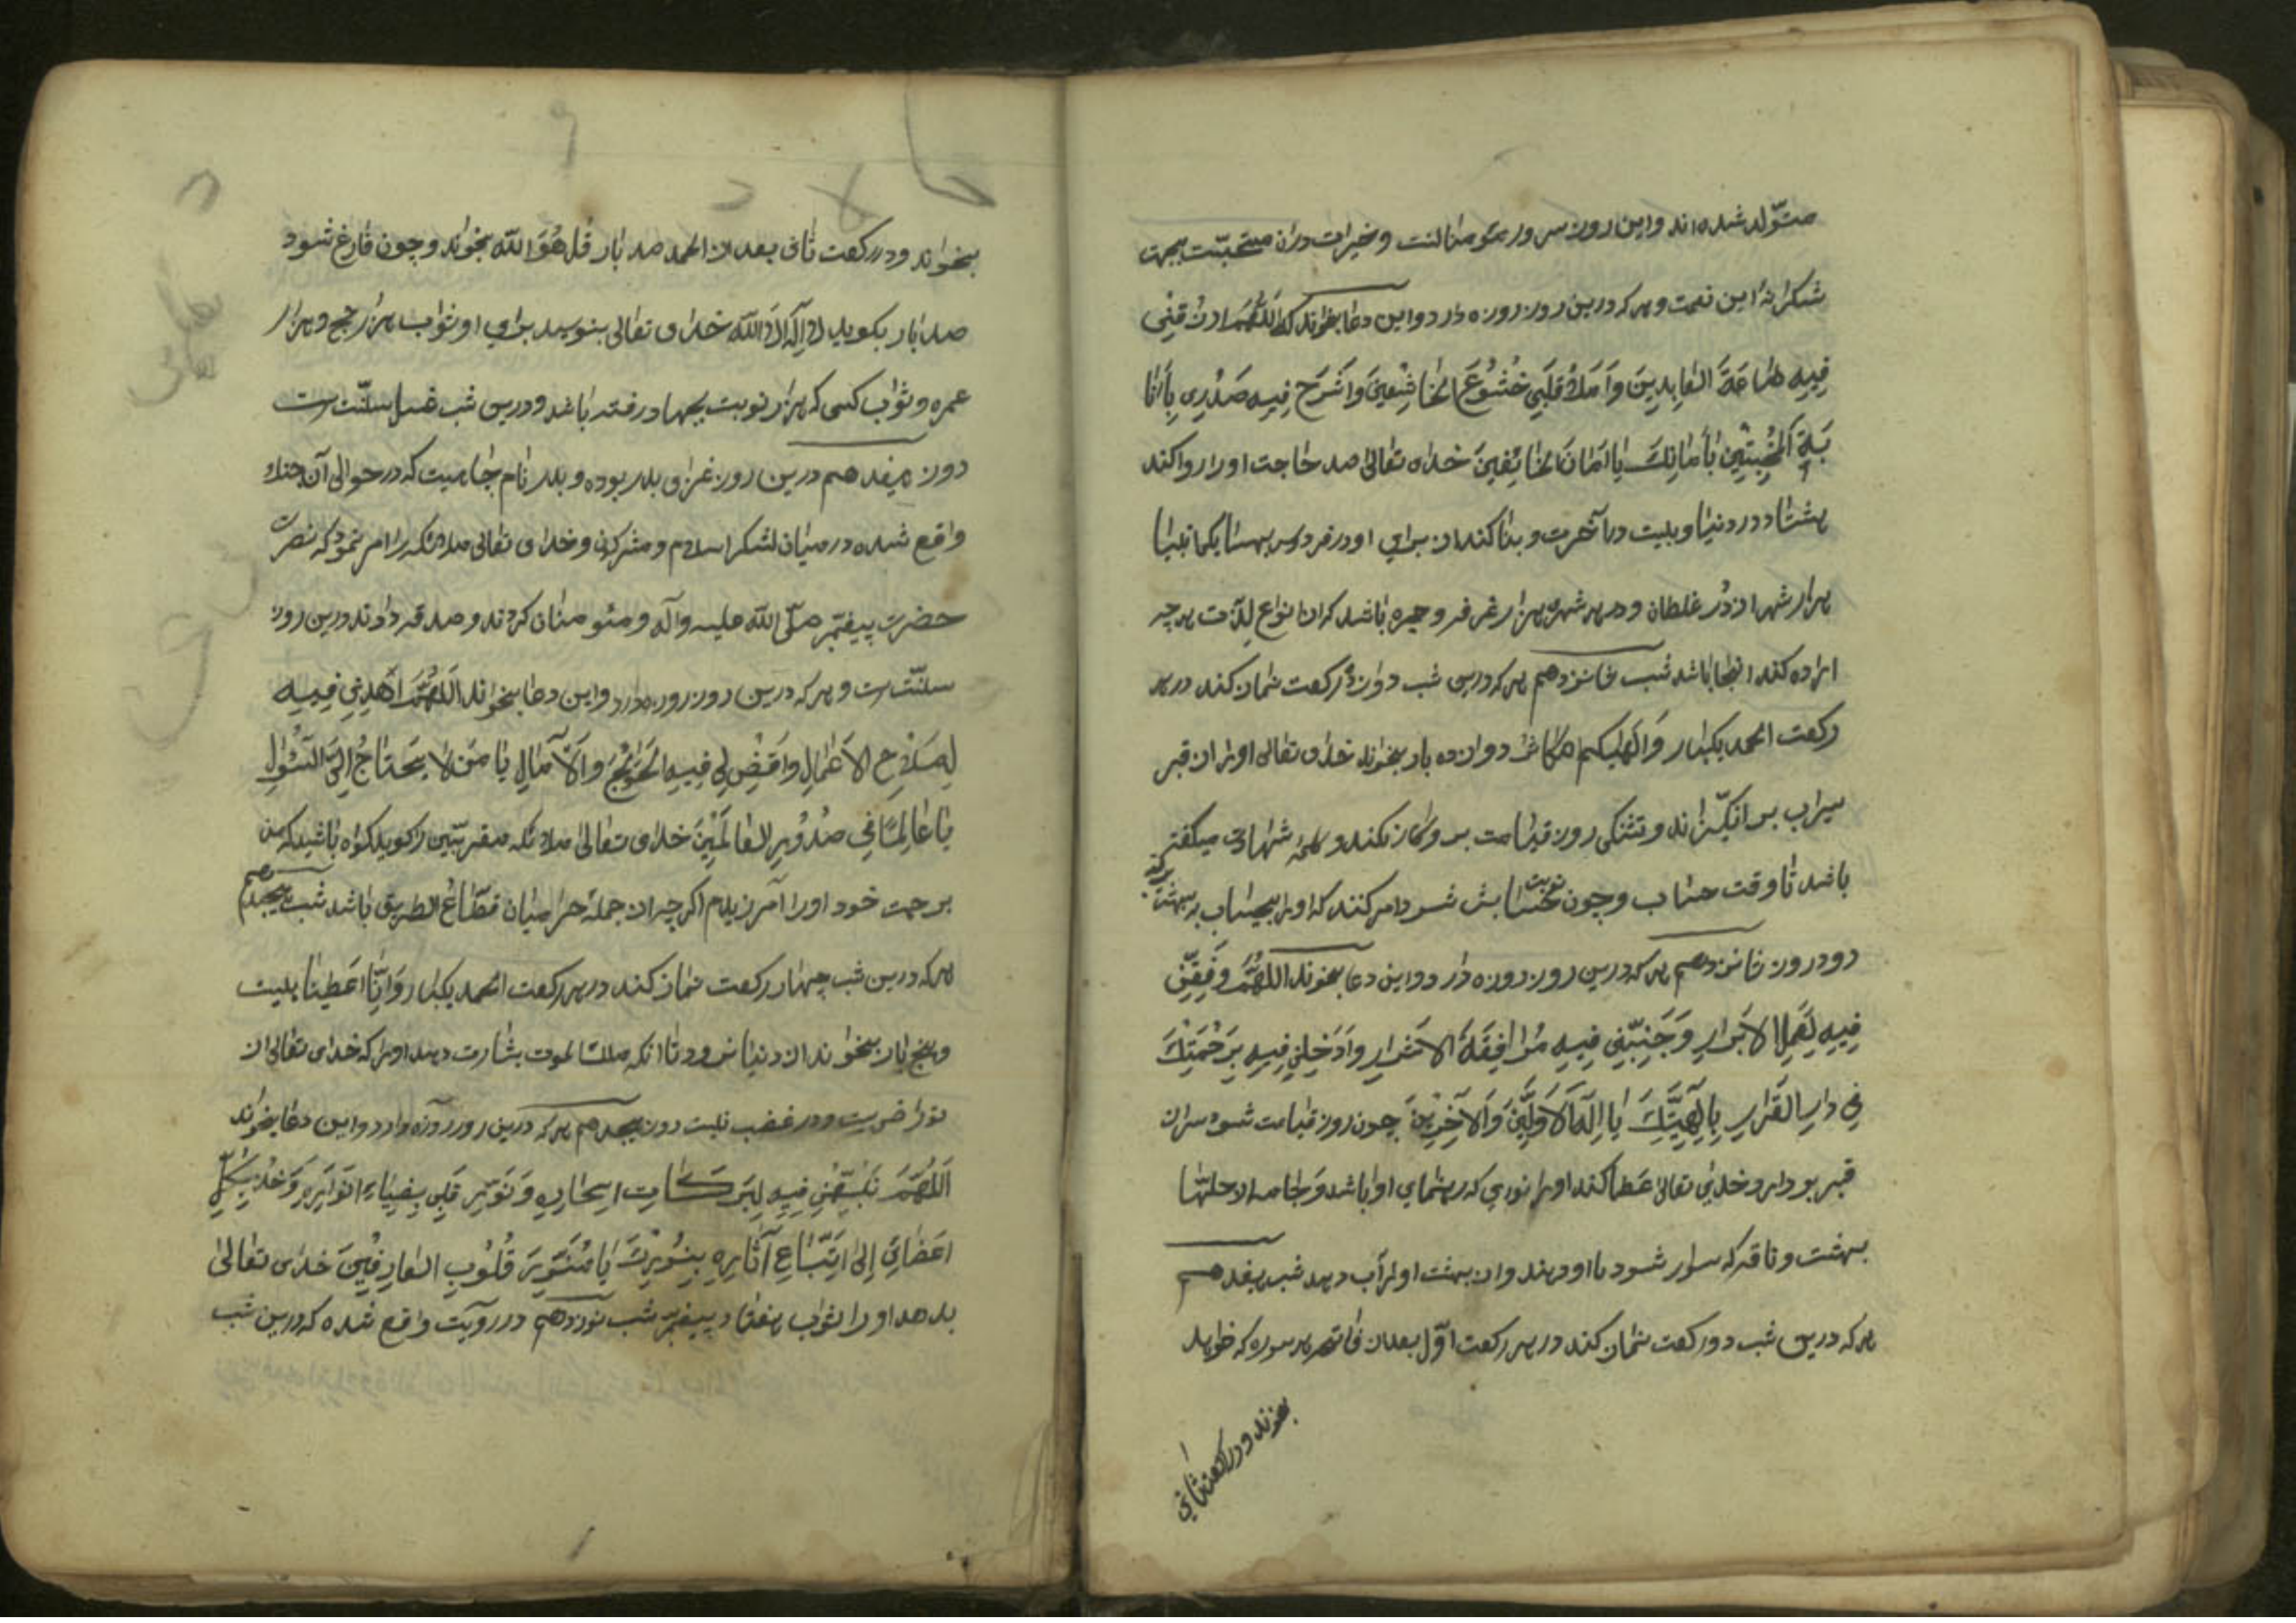 متولد شده اند و این روز سرور مؤمنانست و خیرات دران مستحبست بجهت
شکرانه این نعمت و هر که درین روز روزه دارد و این دعا بخواند که اللَّهُمَّ ارْزُقْنِی
فِیهِ طَاعَةَ العَابِدِینَ وَامْلَأْ قَلْبِی خُشُوعَ الخَاشِعِینَ وَاشْرَحْ فِیهِ صَدْرِی بِأَنَا
بَةِ المُخْبِتِینَ بِأَمَانِكَ یَا أَمَانَ الخَائِفِینَ خدای تعالی صد حاجت او را روا کند
هشتاد در دنیا و بیست در آخرت و بنا کند از برای او در فردوس
هزار شهر از در غلطان و در هر شهری هزار غرفه و حجره باشد که از انواع لذت هر چه
اراده کند انجا باشد شب شانزدهم هر که درین شب دوازده رکعت نماز کند در هر
رکعت الحمد یکبار و الهیکم التکاثر دوازده بار بخواند خدای تعالی او را از قبر
سیراب بر انگیزاند و تشنگی روز قیامت بر و کار نکند و کلمه شهادت میگفته
باشد تا وقت حساب و چون نوبت حسابش شود امر کنند که او را بیحساب به بهشت برند
دو در روز شانزدهم هر که درین روز روزه دارد و این دعا بخواند اللَّهُمَّ وَفِّقْنِی
فِیهِ لِعَمَلِ الأَبْرَارِ وَجَنِّبْنِی فِیهِ مُرَافَقَةَ الأَشْرَارِ وَأَدْخِلْنِی فِیهِ بِرَحْمَتِكَ
فِی دَارِ القَرَارِ بِإِلَهِیَّتِكَ یَا إِلَهَ الأَوَّلِینَ وَالآخِرِینَ چون روز قیامت شود سر از
قبر بردارد خدای تعالی عطا کند او را نوری که رهنمای او باشد و جامه از حلتها
بهشت و ناقه که سوار شود با او دهند و از بهشت او را آب دهد شب هفدهم
هر که درین شب دو رکعت نماز کند در هر رکعت اول بعد از فاتحه هر سوره که خواهد
بخواند و در رکعت ثانی
بخواند و در رکعت ثانی بعد از الحمد صد بار قُل هُوَ اللّه بخواند و چون فارغ شود
صد بار بکوید لا إِلَهَ إِلَّا اللّه خدای تعالی بنویسد برای او ثواب هزار حج و هزار
عمره و ثواب کسی که هزار نوبت بجهاد رفته باشد و درین شب غسل سنت است
روز هفدهم درین روز غزای بدر بوده و بدر نام جاییست که در حوالی آن جنك
واقع شده در میان لشکر اسلام و مشرکان و خدای تعالی ملائکه را امر نمود که نصرت
حضرت پیغمبر صلّی اللّه علیه و آله و مؤمنان کردند و صدقه دادند درین روز
سنت است و هر که درین روز روزه دارد و این دعا بخواند اللَّهُمَّ اهْدِنِی فِیهِ
لِصَلَاحِ الأَعْمَالِ وَاقْضِ لِی فِیهِ الحَوَائِجَ وَالآمَالَ یَا مَنْ لَا یَحْتَاجُ إِلَى السُّؤَالِ
یَا عَالِمًا فِی صُدُورِ العَالَمِینَ خدای تعالی ملائکه مقربین را کوید گواه باشید که من
برحمت خود او را آمرزیدم اگر چه از جمله حرامیان قطّاعُ الطریق باشد شب هیجدهم
هر که درین شب چهار رکعت نماز کند در هر رکعت الحمد یکبار و إِنَّا أَعْطَیْنَا بیست
و پنج بار بخواند از دنیا نرود تا انکه ملك الموت بشارت دهد او را که خدای تعالی از
تو راضی است و در غضب نیست روز هیجدهم هر که درین روز روزه دارد و این دعا بخواند
اللَّهُمَّ نَبِّهْنِی فِیهِ لِبَرَكَاتِ أَسْحَارِهِ وَنَوِّرْ قَلْبِی بِضِیَاءِ أَنْوَارِهِ وَخُذْ بِكُلِّ
أَعْضَائِی إِلَى اتِّبَاعِ آثَارِهِ بِنُورِكَ یَا مُنَوِّرَ قُلُوبِ العَارِفِینَ خدای تعالی
بدهد او را ثواب هفتاد پیغمبر شب نوزدهم در روایت واقع شده که درین شب